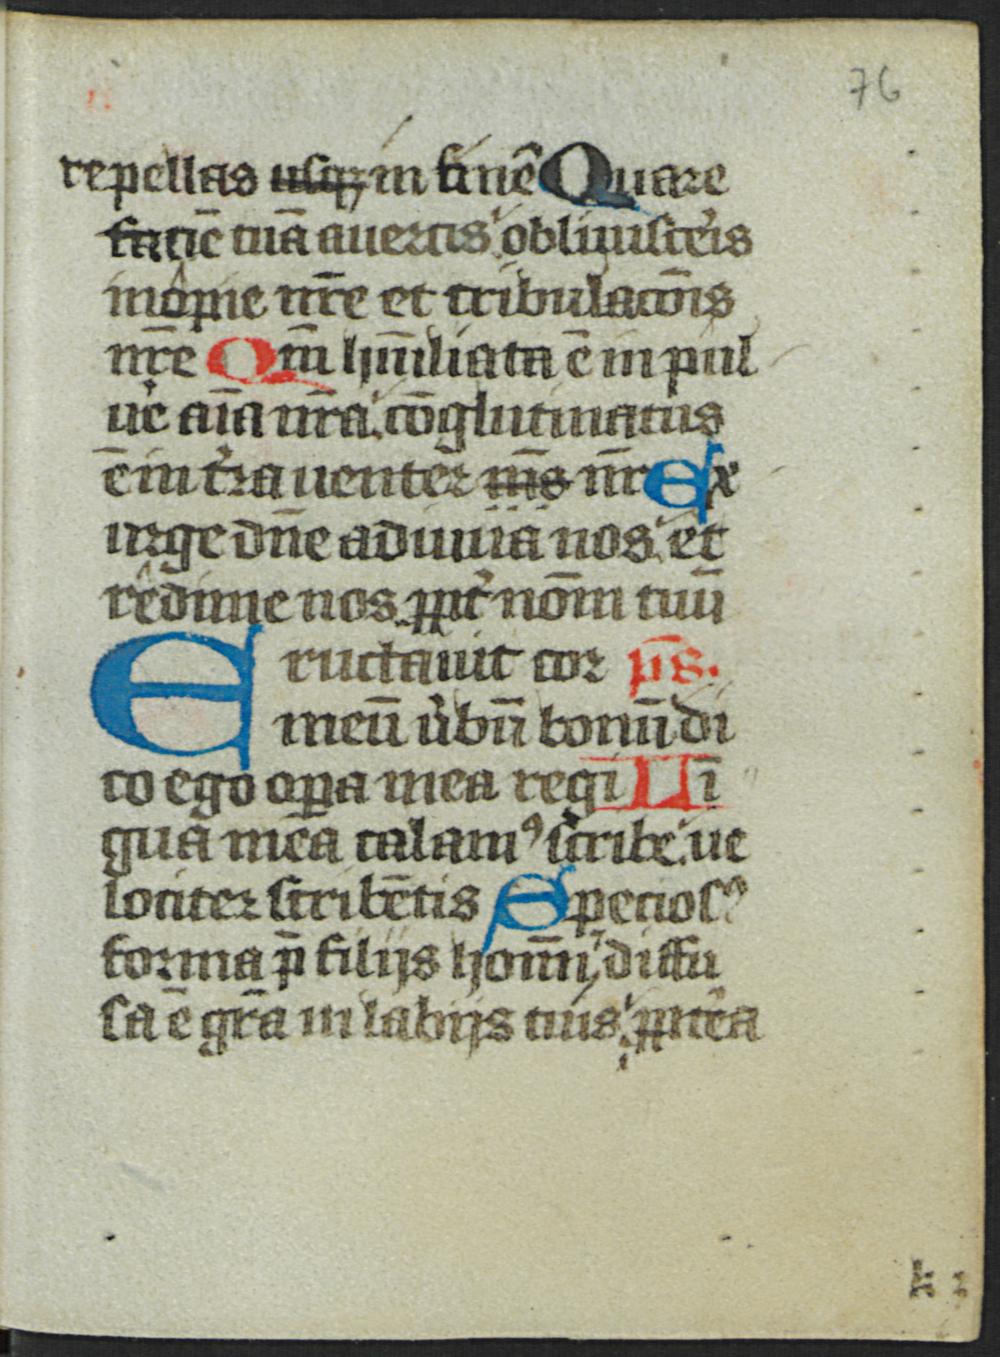 76
repellas usq₃ in finē Quare
faciē tuā auertis oblīuisceris
inopie nr̄e et tribulacōis
nr̄e Qm̄ hūiliata ē in pul
ue̓ aīa nr̄a cōglutinatus
ē in tr̓ra uenter nr̄s nr̄ Ex
urge dn̄e adiuua nos et
redime nos ꝓpt̓ nōm tuū
Eructauit cor ps̄.
meū u̓bū bonū di
co ego oꝑa mea regi Lī
gua mea calamꝰ scribe ue
lociter scribētis Speciosꝰ
forma p̄ filijs hoīm diffu
sa ē gr̄a in labijs tuis ꝓpte̓a